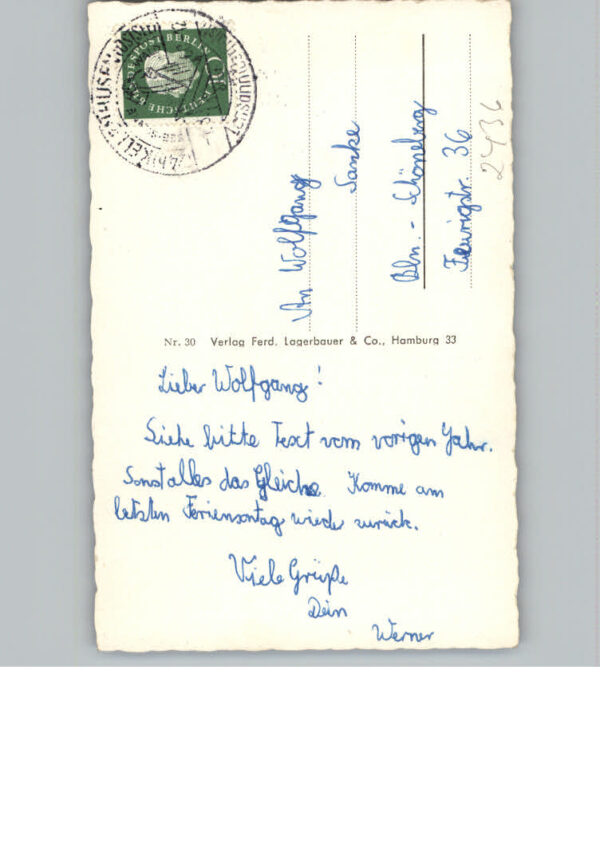 DEUTSCHE BUNDESPOST BERLIN
An Wolfgang
Sanke
Bln. - Schöneberg
Feurigstr. 36
2436
Nr. 30 Verlag Ferd. Lagerbauer & Co., Hamburg 33
Lieber Wolfgang!
Siehe bitte Text vom vorigen Jahr.
Sonst alles das Gleiche. Komme am
letzten Feriensontag wieder zurück.
Viele Grüße
Dein
Werner